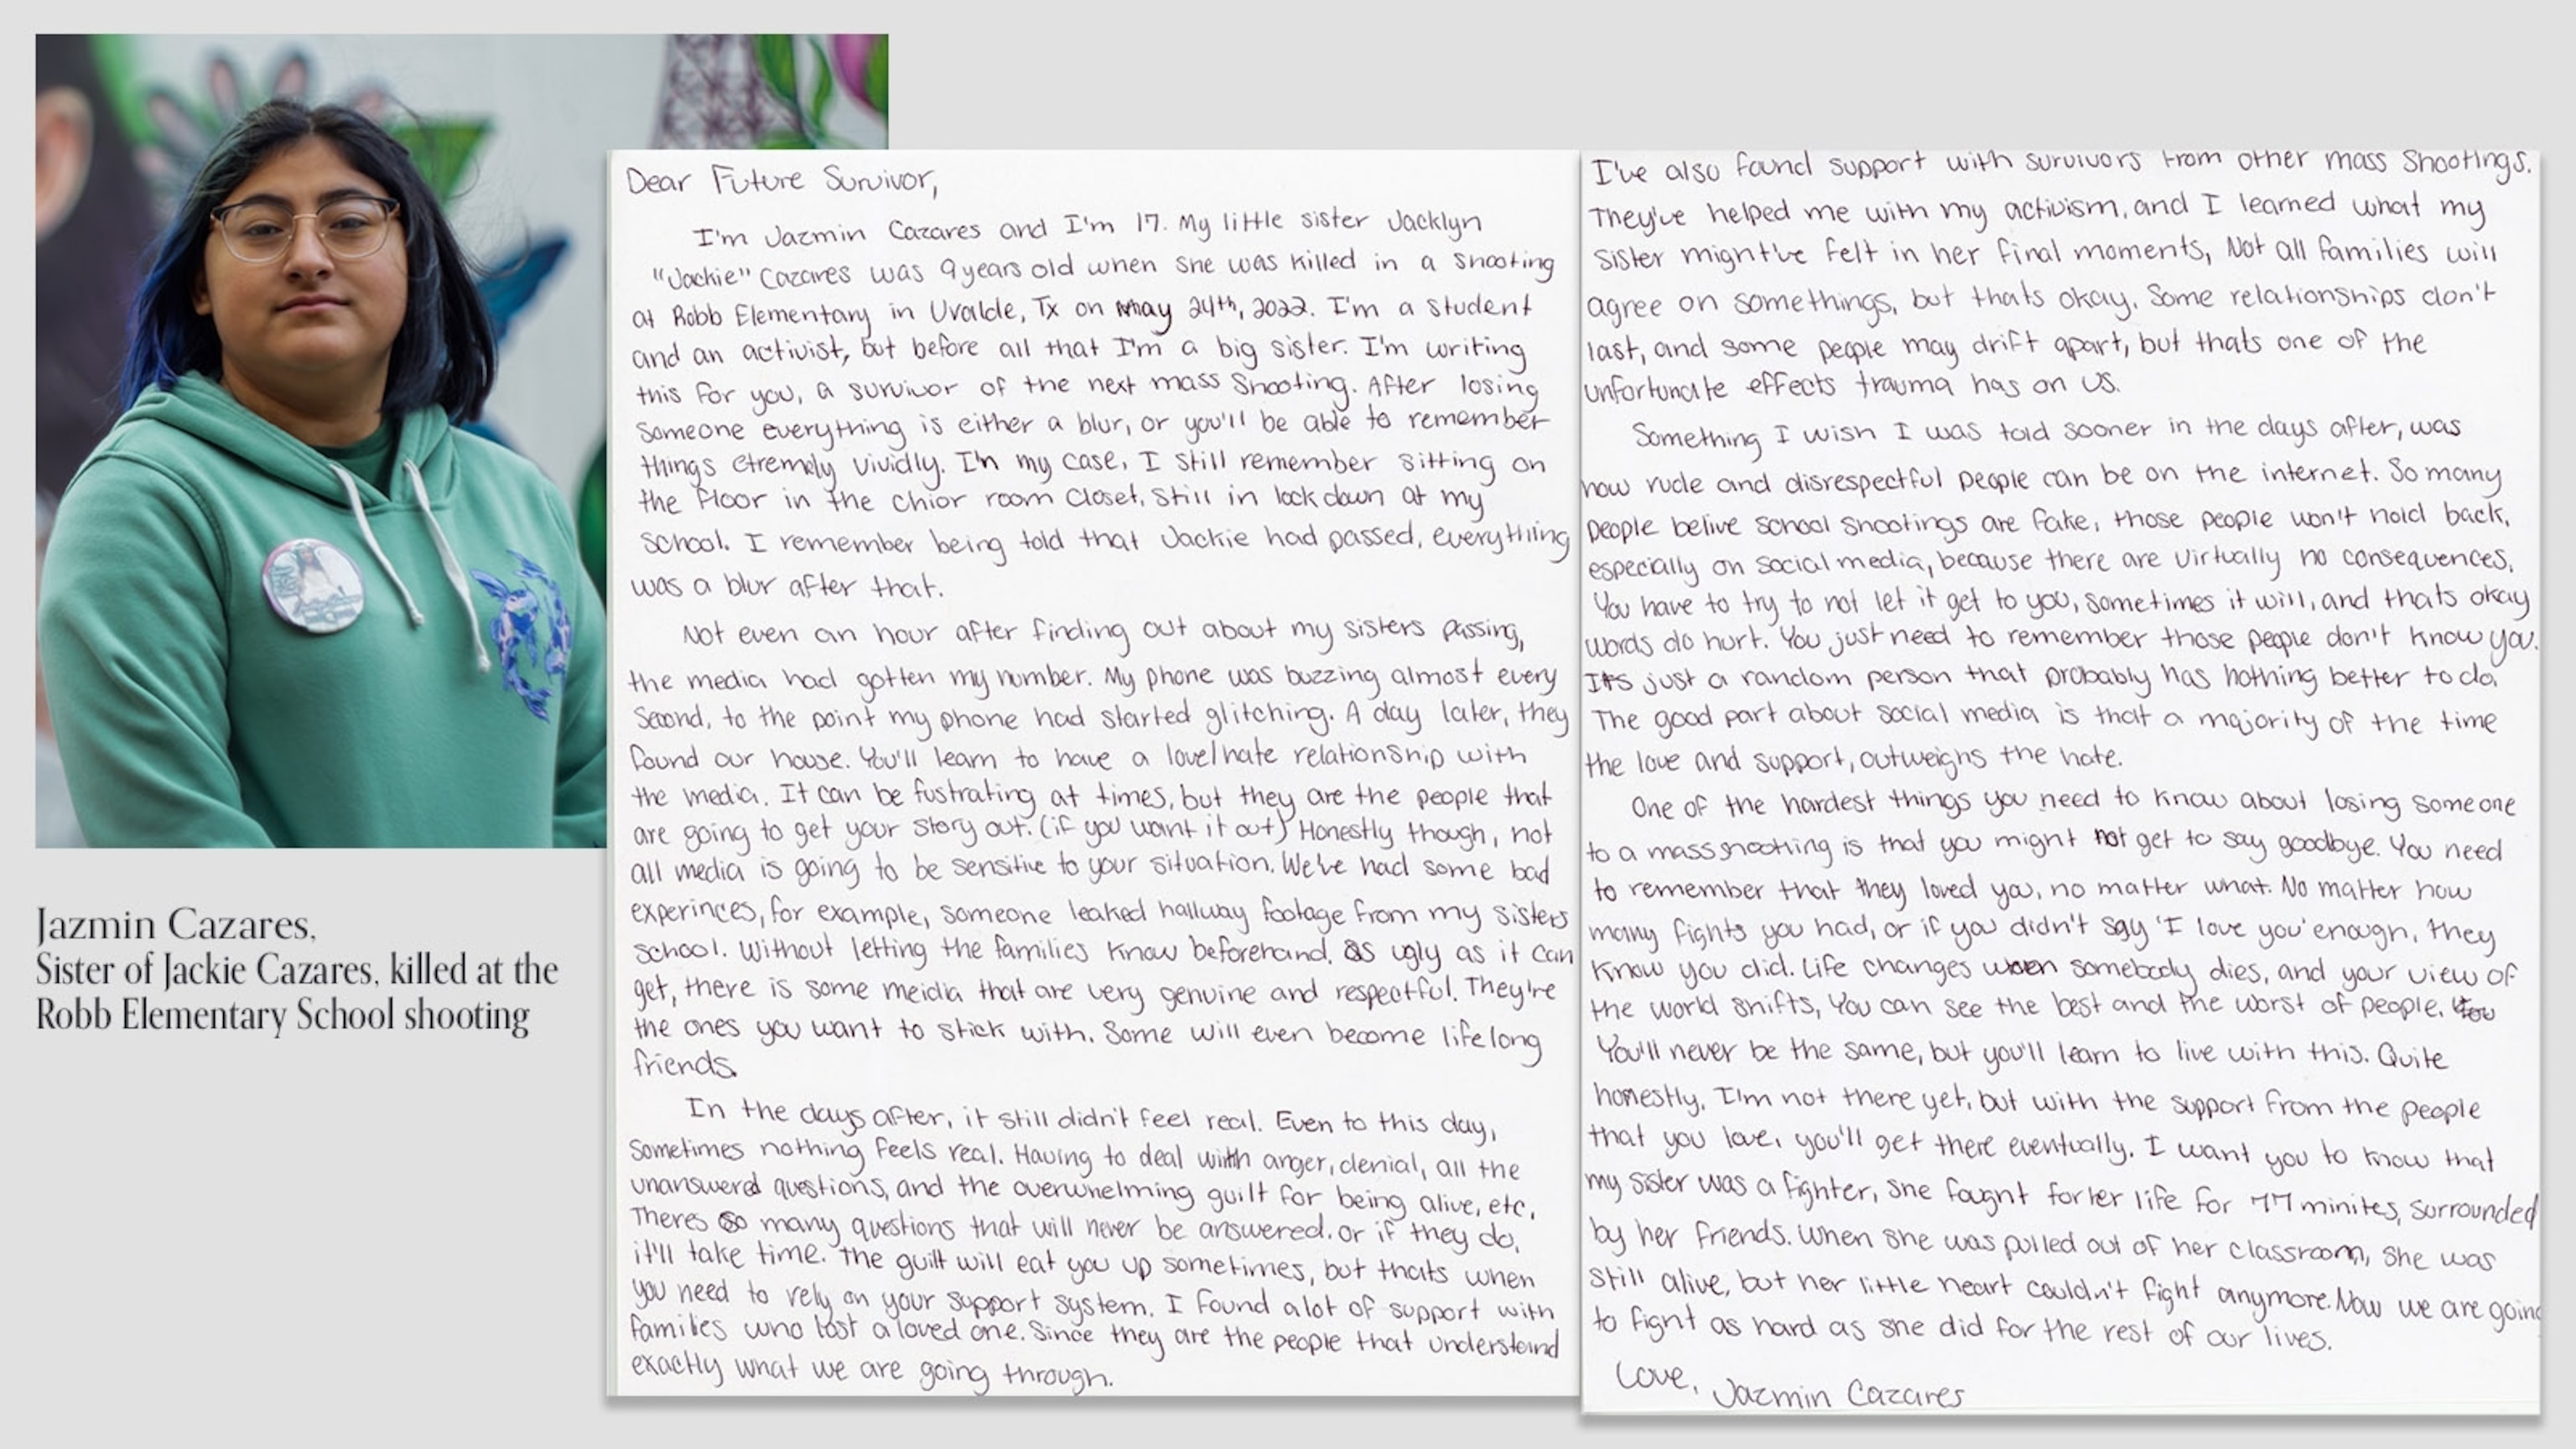 Jazmin Cazares,
Sister of Jackie Cazares, killed at the
Robb Elementary School shooting
Dear Future Survivor,
I'm Jazmin Cazares and I'm 17. My little sister Jacklyn
"Jackie" Cazares was 9 years old when she was killed in a shooting
at Robb Elementary in Uvalde, Tx on May 24th, 2022. I'm a student
and an activist, but before all that I'm a big sister. I'm writing
this for you, a survivor of the next mass shooting. After losing
someone everything is either a blur, or you'll be able to remember
things etremely vividly. In my case, I still remember sitting on
the floor in the chior room closet, still in lockdown at my
school. I remember being told that Jackie had passed, everything
was a blur after that.
Not even an hour after finding out about my sisters passing,
the media had gotten my number. My phone was buzzing almost every
second, to the point my phone had started glitching. A day later, they
found our house. You'll learn to have a love/hate relationship with
the media. It can be fustrating at times, but they are the people that
are going to get your story out. (if you want it out) Honestly though, not
all media is going to be sensitive to your situation. We've had some bad
experinces, for example, someone leaked hallway footage from my sisters
school. Without letting the families know beforehand. As ugly as it can
get, there is some meidia that are very genuine and respectful. They're
the ones you want to stick with. Some will even become lifelong
friends.
In the days after, it still didn't feel real. Even to this day,
sometimes nothing feels real. Having to deal with anger, denial, all the
unanswered questions, and the overwhelming guilt for being alive, etc.
Theres so many questions that will never be answered. or if they do,
it'll take time. The guilt will eat you up sometimes, but thats when
you need to rely on your support system. I found alot of support with
families who lost a loved one. Since they are the people that understand
exactly what we are going through.
I've also found support with survivors from other mass shootings.
They've helped me with my activism, and I learned what my
sister might've felt in her final moments, Not all families will
agree on somethings, but thats okay. Some relationships don't
last, and some people may drift apart, but thats one of the
unfortunate effects trauma has on us.
Something I wish I was told sooner in the days after, was
how rude and disrespectful people can be on the internet. So many
people belive school shootings are fake, those people won't hold back,
especially on social media, because there are virtually no consequences.
You have to try to not let it get to you, sometimes it will, and thats okay
words do hurt. You just need to remember those people don't know you.
Its just a random person that probably has nothing better to do.
The good part about social media is that a majority of the time
the love and support, outweighs the hate.
One of the hardest things you need to know about losing someone
to a mass shooting is that you might not get to say goodbye. You need
to remember that they loved you, no matter what. No matter how
many fights you had, or if you didn't say 'I love you' enough, they
know you did. Life changes when somebody dies, and your view of
the world shifts, You can see the best and the worst of people. You
You'll never be the same, but you'll learn to live with this. Quite
honestly, I'm not there yet, but with the support from the people
that you love, you'll get there eventually. I want you to know that
my sister was a fighter, she fought for her life for 77 minites, surrounded
by her friends. When she was pulled out of her classroom, she was
still alive, but her little heart couldn't fight anymore. Now we are going
to fight as hard as she did for the rest of our lives.
Love, Jazmin Cazares